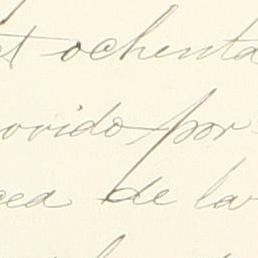 t ochenta
ovido por
cea de la